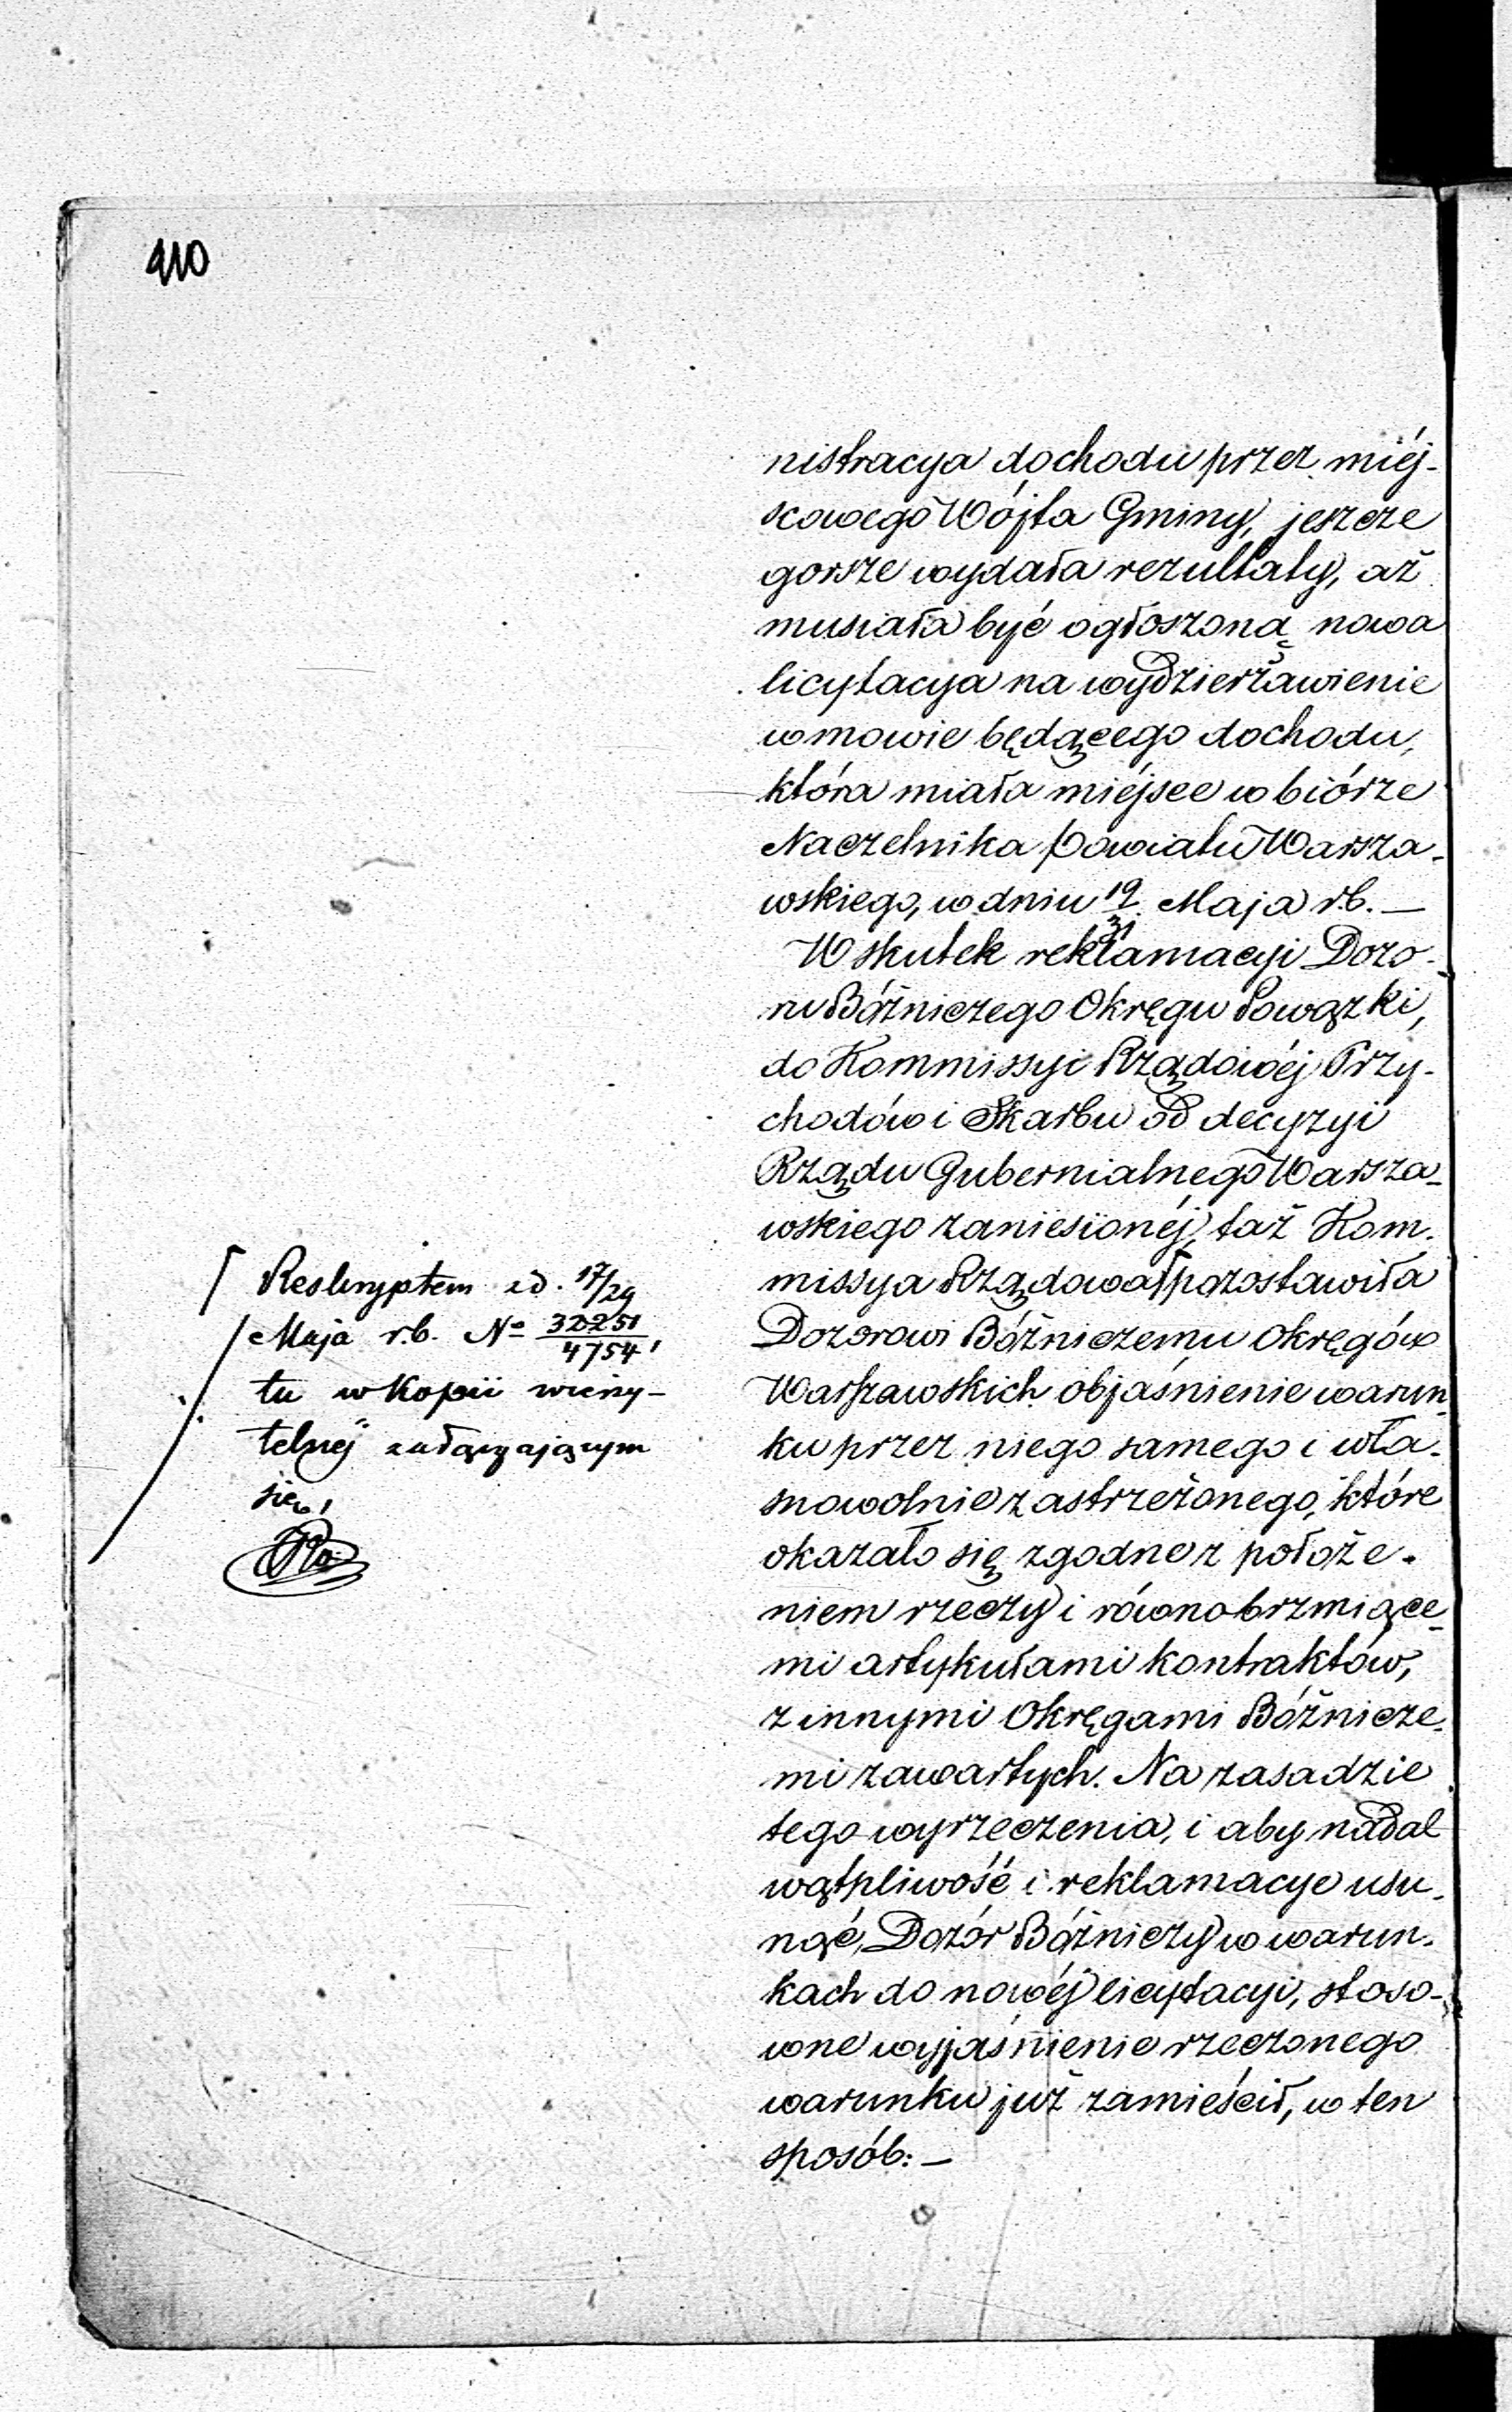 410
nistracya dochodu przez miéj-
scowego Wójta Gminy, jeszcze
gorsze wydała rezultaty, aż
musiała być ogłoszoną nowa
licytacya na wydzierżawienie
w mowie będącego dochodu,
która miała miéjsce w biórze
Naczelnika Powiatu Warsza-
wskiego, w dniu 19/31 Maja r.b. —
W skutek reklamacyi Dozo-
ru Bóżniczego Okręgu Powązki,
do Kommissyi Rządowéj Przy-
chodów i Skarbu od decyzyi
Rządu Gubernialnego Warsza-
wskiego zaniesionéj, taż Kom-
missya Rządowa pozostawiła
Dozorowi Bóżniczemu Okręgów
Warszawskich objaśnienie warun-
ku przez niego samego i wła-
snowolnie zastrzeżonego, które
okazało się zgodne z położe-
niem rzeczy i równobrzmiące-
mi artykułami kontraktów,
z innymi Okręgami Bóżnicze-
mi zawartych. Na zasadzie
tego wyrzeczenia, i aby nadal
wątpliwość i reklamacye usu-
nąć, Dozór Bóżniczy w warun-
kach do nowéj licytacyi, stoso-
wne wyjaśnienie rzeczonego
warunku już zamieścił, w ten
sposób: —
Reskryptem z d. 17/29
Maja r.b. No 32251/4754,
tu w kopii wierzy-
telnéj załączającym
się,